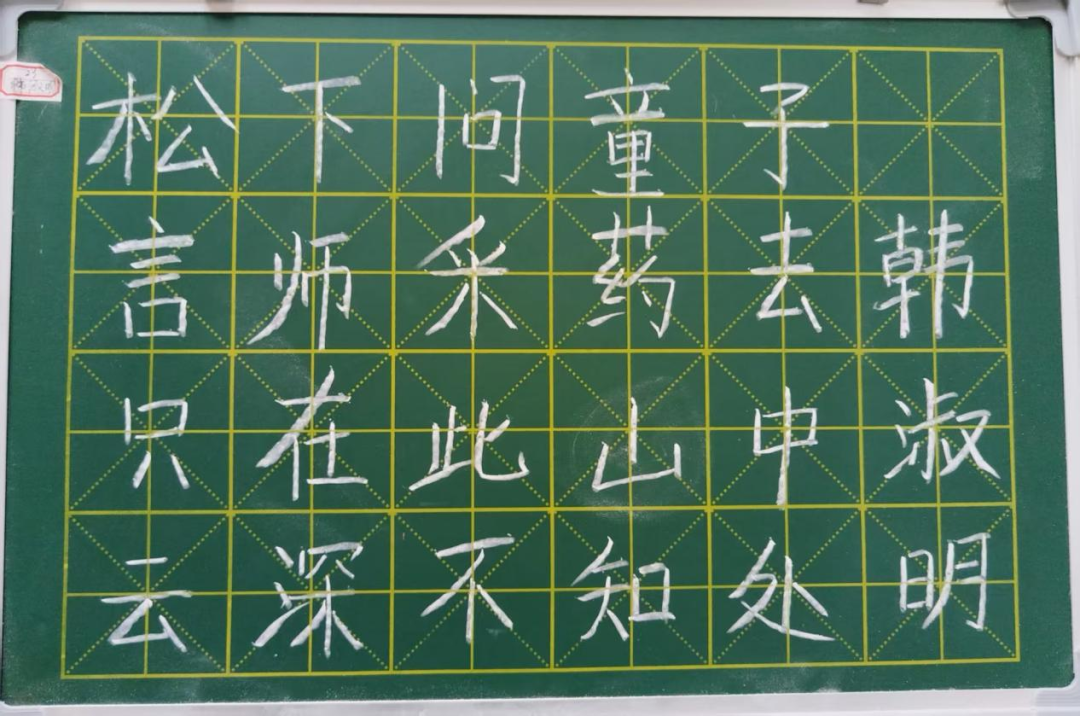 松下问童子
言师采药去韩
只在此山中淑
云深不知处明